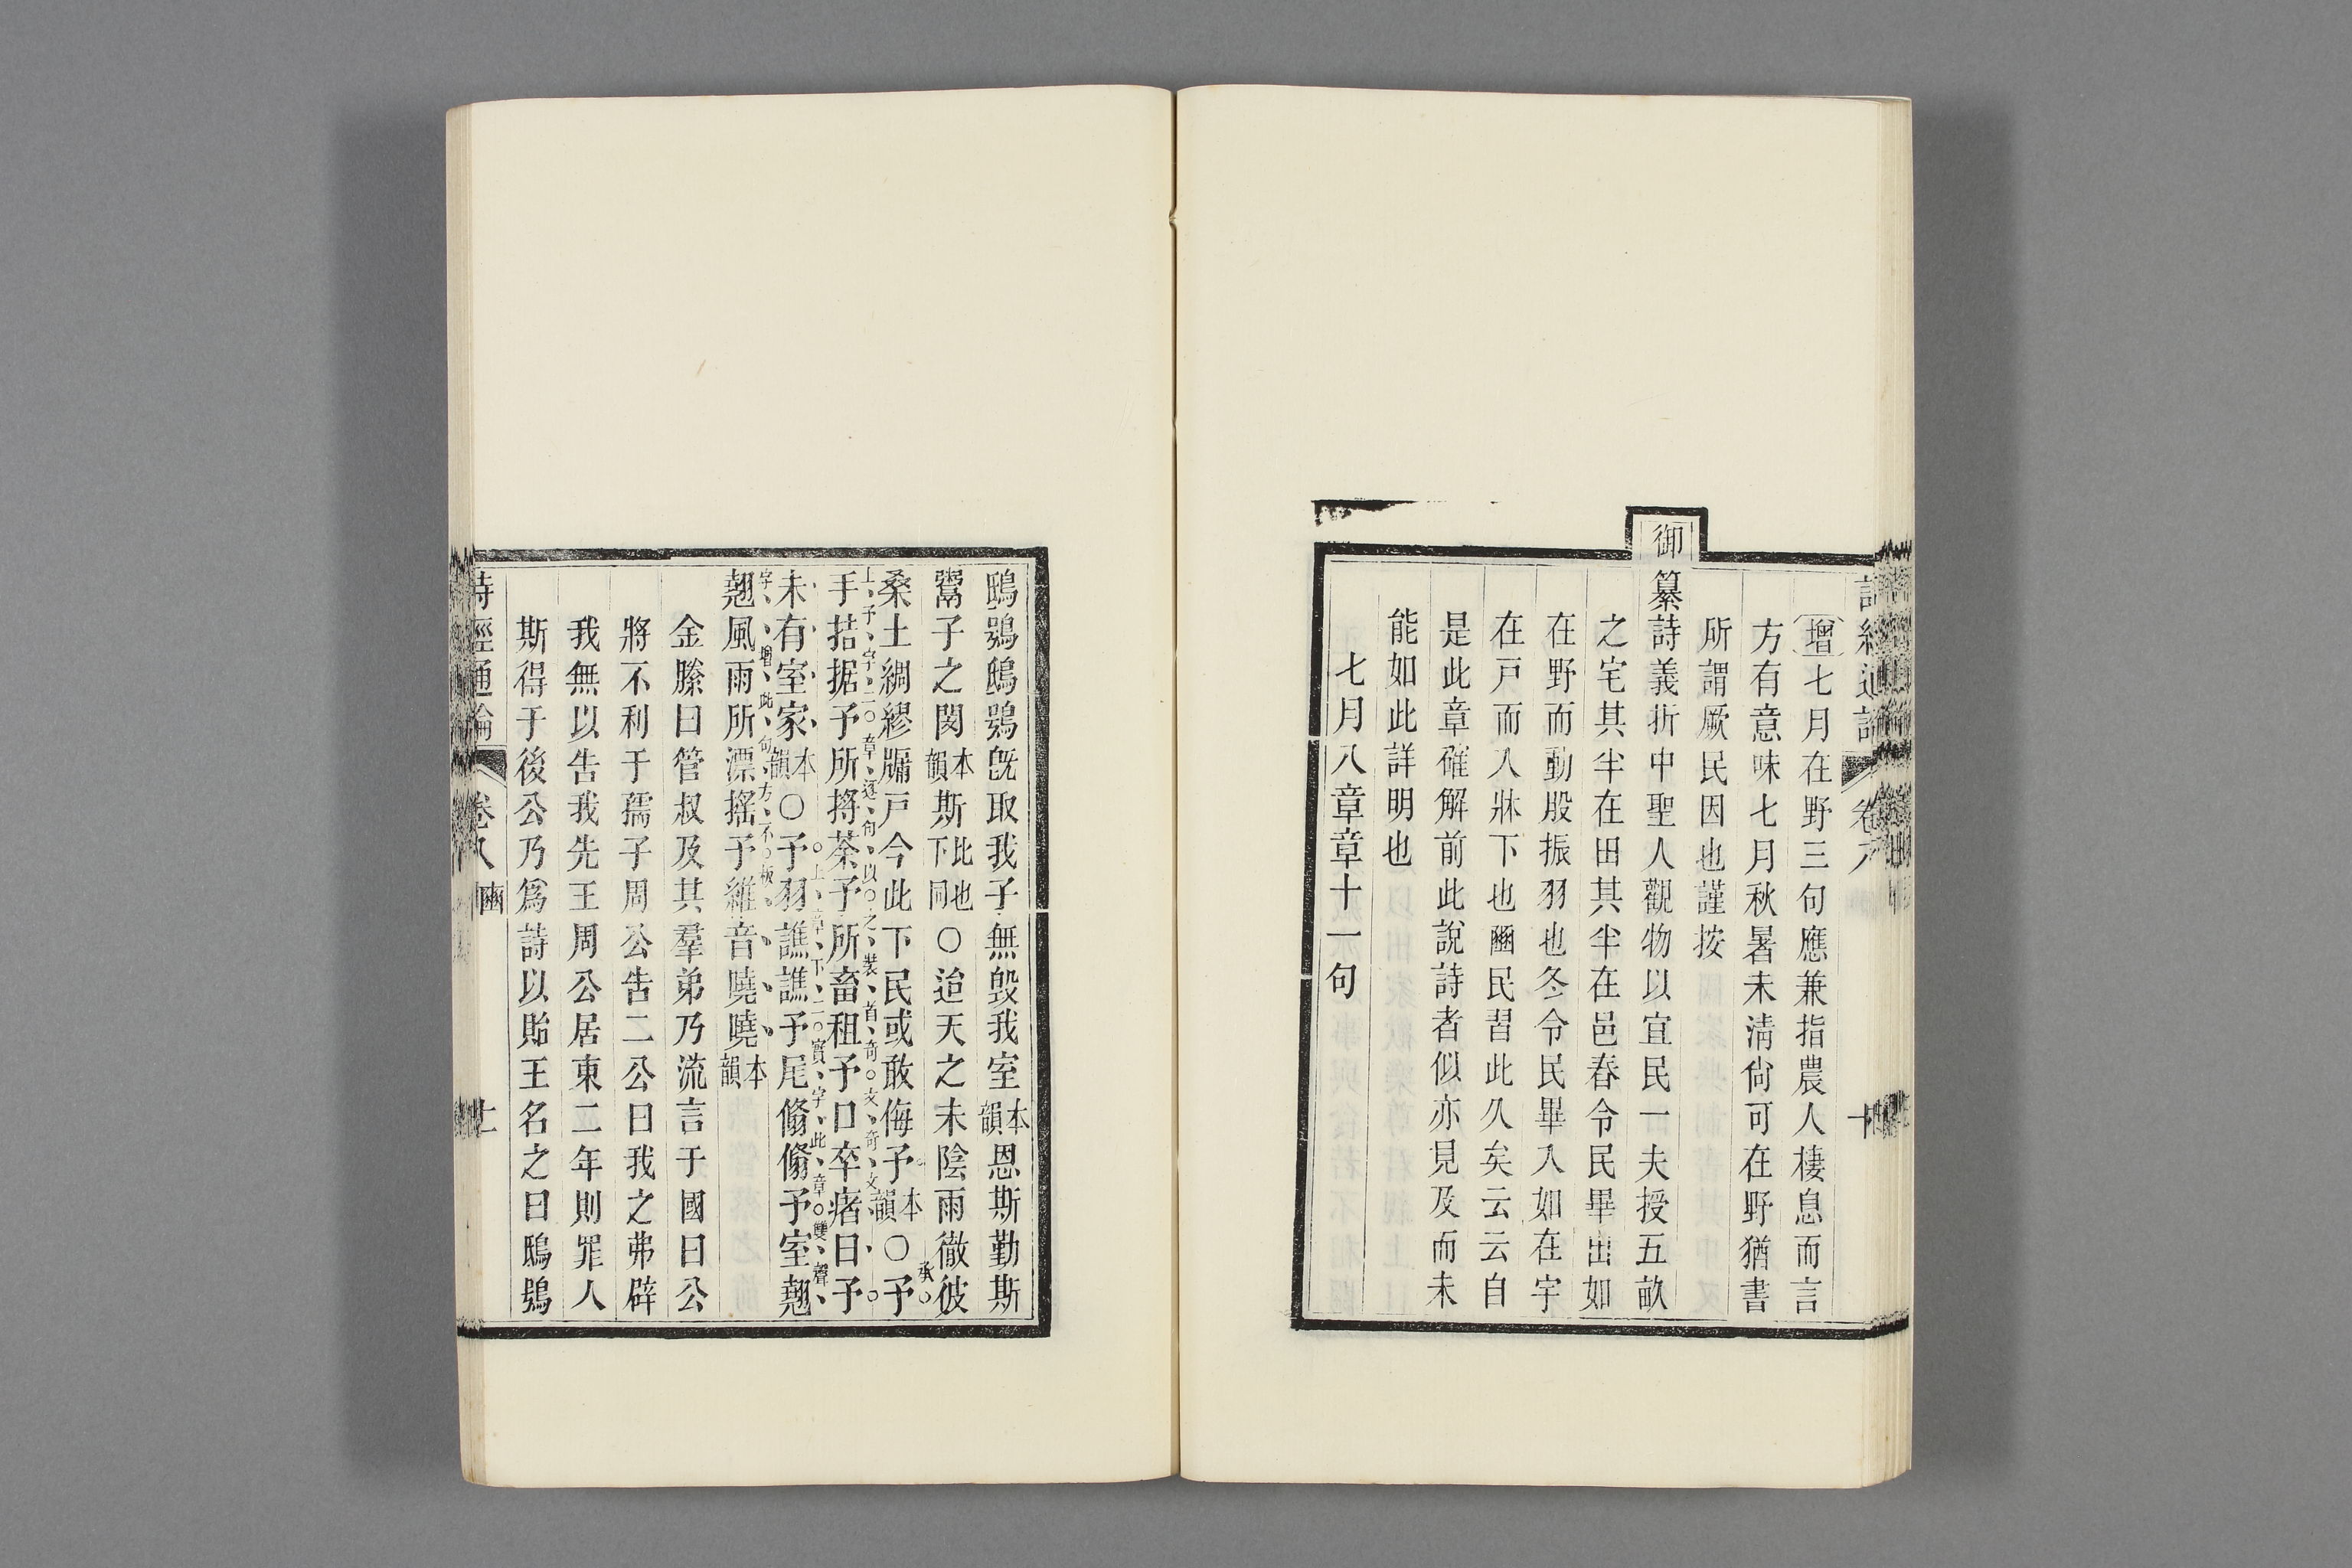 增七月在野三句應兼指農人棲息而言
方有意味七月秋暑未淸尙可在野猶書
所謂厥民因也謹按
御纂詩義折中聖人觀物以宜民一夫授五畝
之宅其半在田其半在邑春令民畢出如
在野而動股振羽也冬令民畢入如在宇
在戸而入牀下也豳民習此久矣云云自
是此章確解前此說詩者似亦見及而未
能如此詳明也
七月八章章十一句
鴟鴞鴟鴞旣取我子無毀我室本韻恩斯勤斯
鬻子之閔本韻斯比也下同○迨天之未陰雨徹彼
承
桑土綢繆牖戸今此下民或敢侮予本韻○予
手拮据予所捋荼予所畜租予口卒瘏曰予
上予字二章逐句以之裝首奇文奇文
未有室家本韻○予羽譙譙予尾翛翛予室翹
上章下二實字此章雙聲
翹風雨所漂搖予維音嘵嘵本韻
字增此句方不板
金縢曰管叔及其羣弟乃流言于國曰公
將不利于孺子周公吿二公曰我之弗辟
我無以吿我先王周公居東二年則罪人
斯得于後公乃爲詩以貽王名之曰鴟鴞
詩經通論 卷八 豳